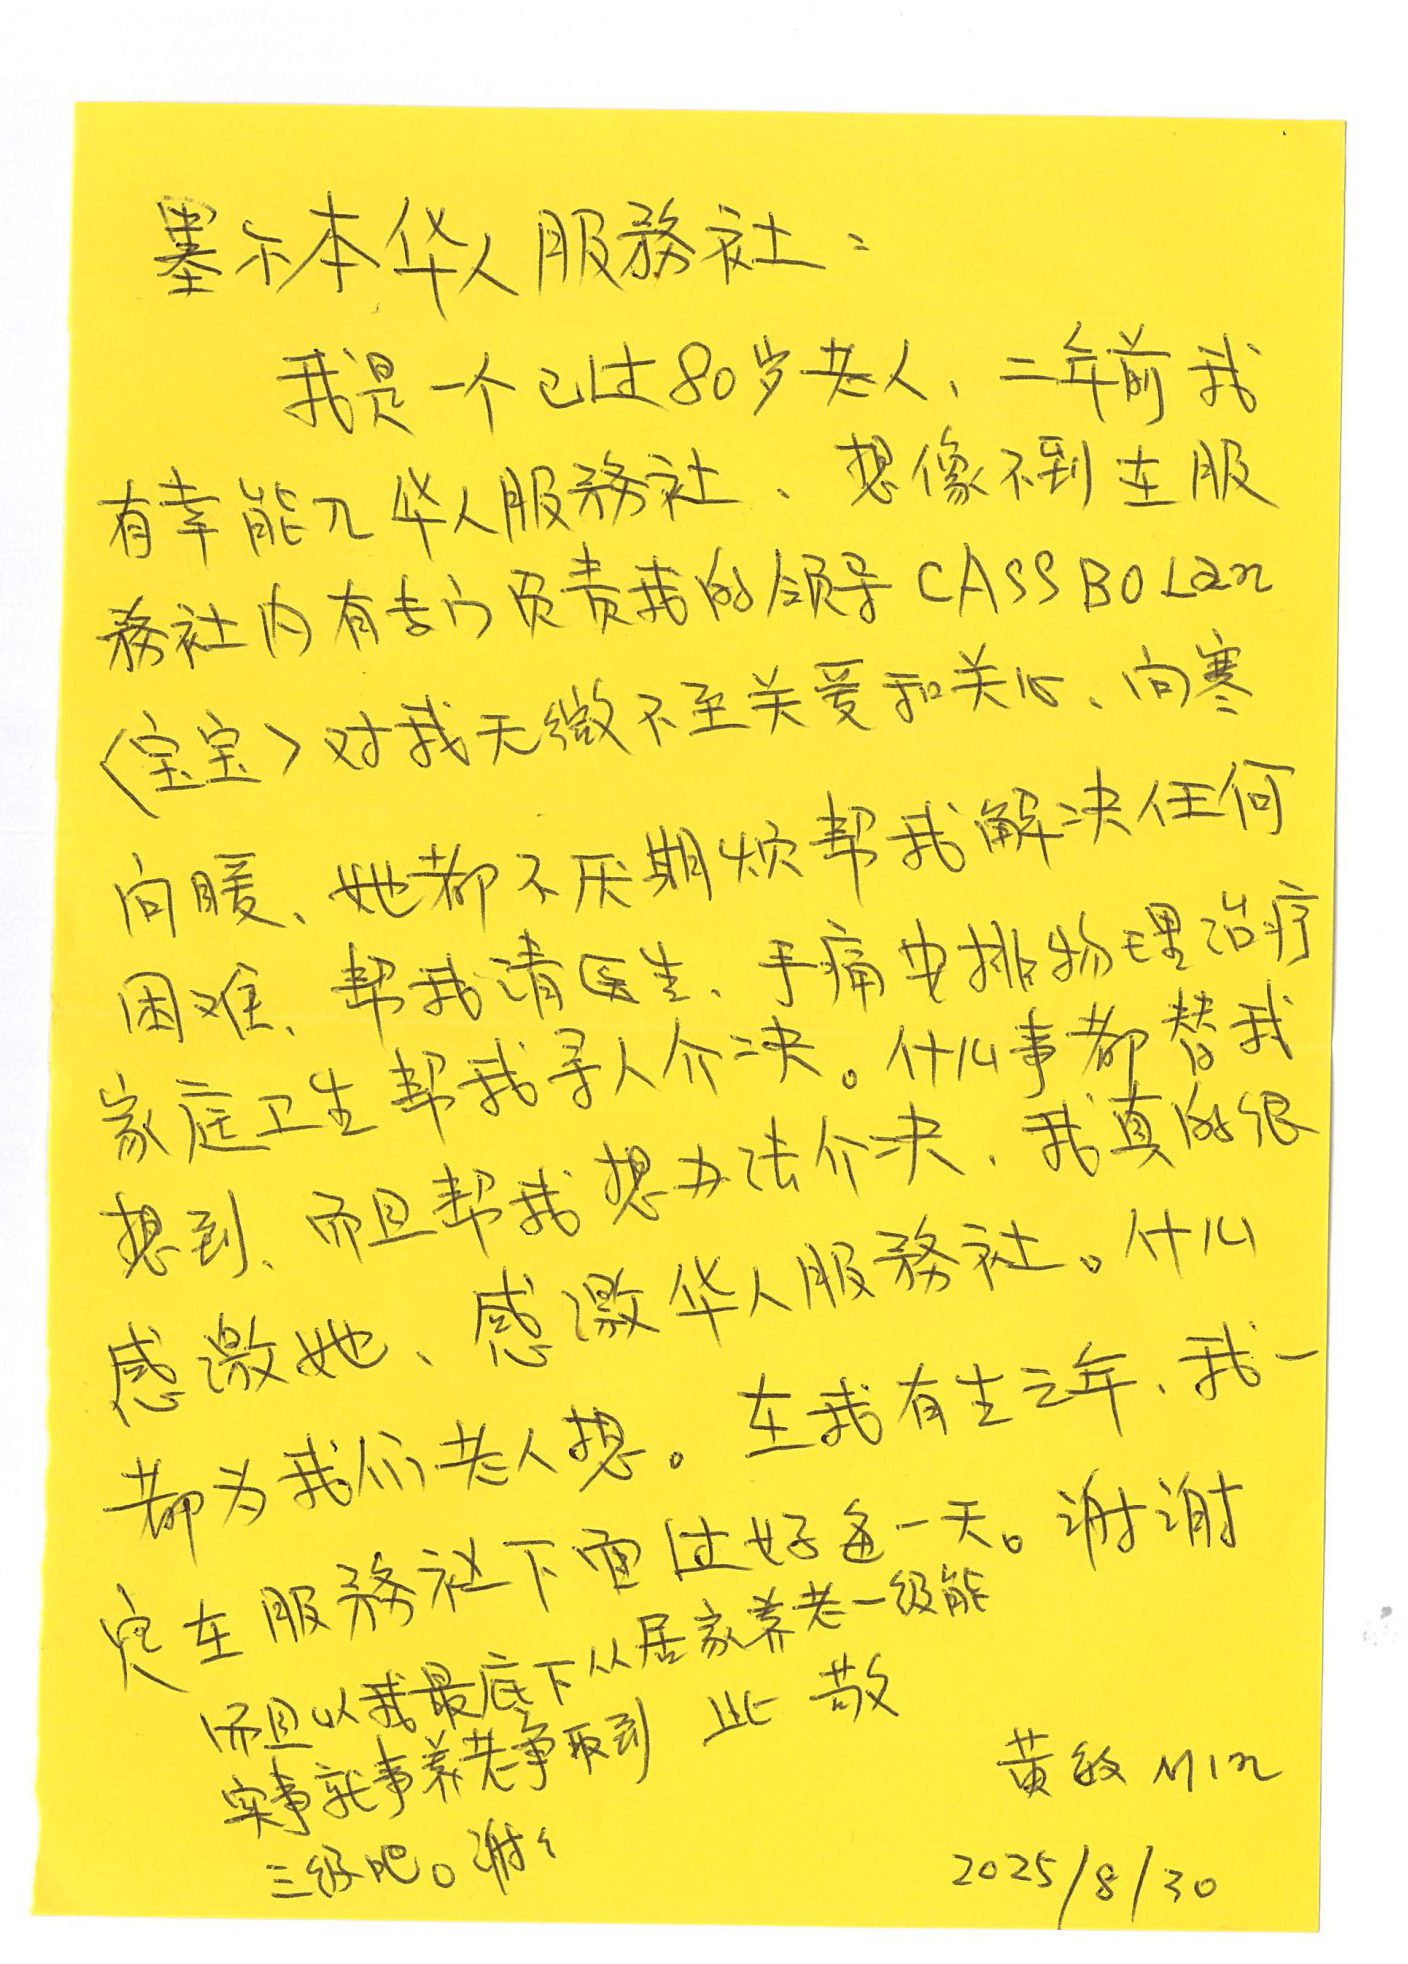 墨尔本华人服務社：
我是一个已过80岁老人、二年前我
有幸能入华人服務社、想像不到在服
務社内有专门负责我的领导CASS BOLan
〈宝宝〉对我无微不至关爱和关心、问寒
问暖、她都不厌期烦帮我解决任何
困难、帮我请医生、手痛安排物理治疗
家庭卫生帮我寻人介决。什么事都替我
想到、而且帮我想办法介决、我真的很
感激她、感激华人服務社。什么
都为我们老人想。在我有生之年、我一
定在服務社下面过好每一天。谢谢
而且以我最底下从居家养老一级能
实事就事养老争取到
三级吧。谢谢
此 敬
黄敏 Min
2025/8/30